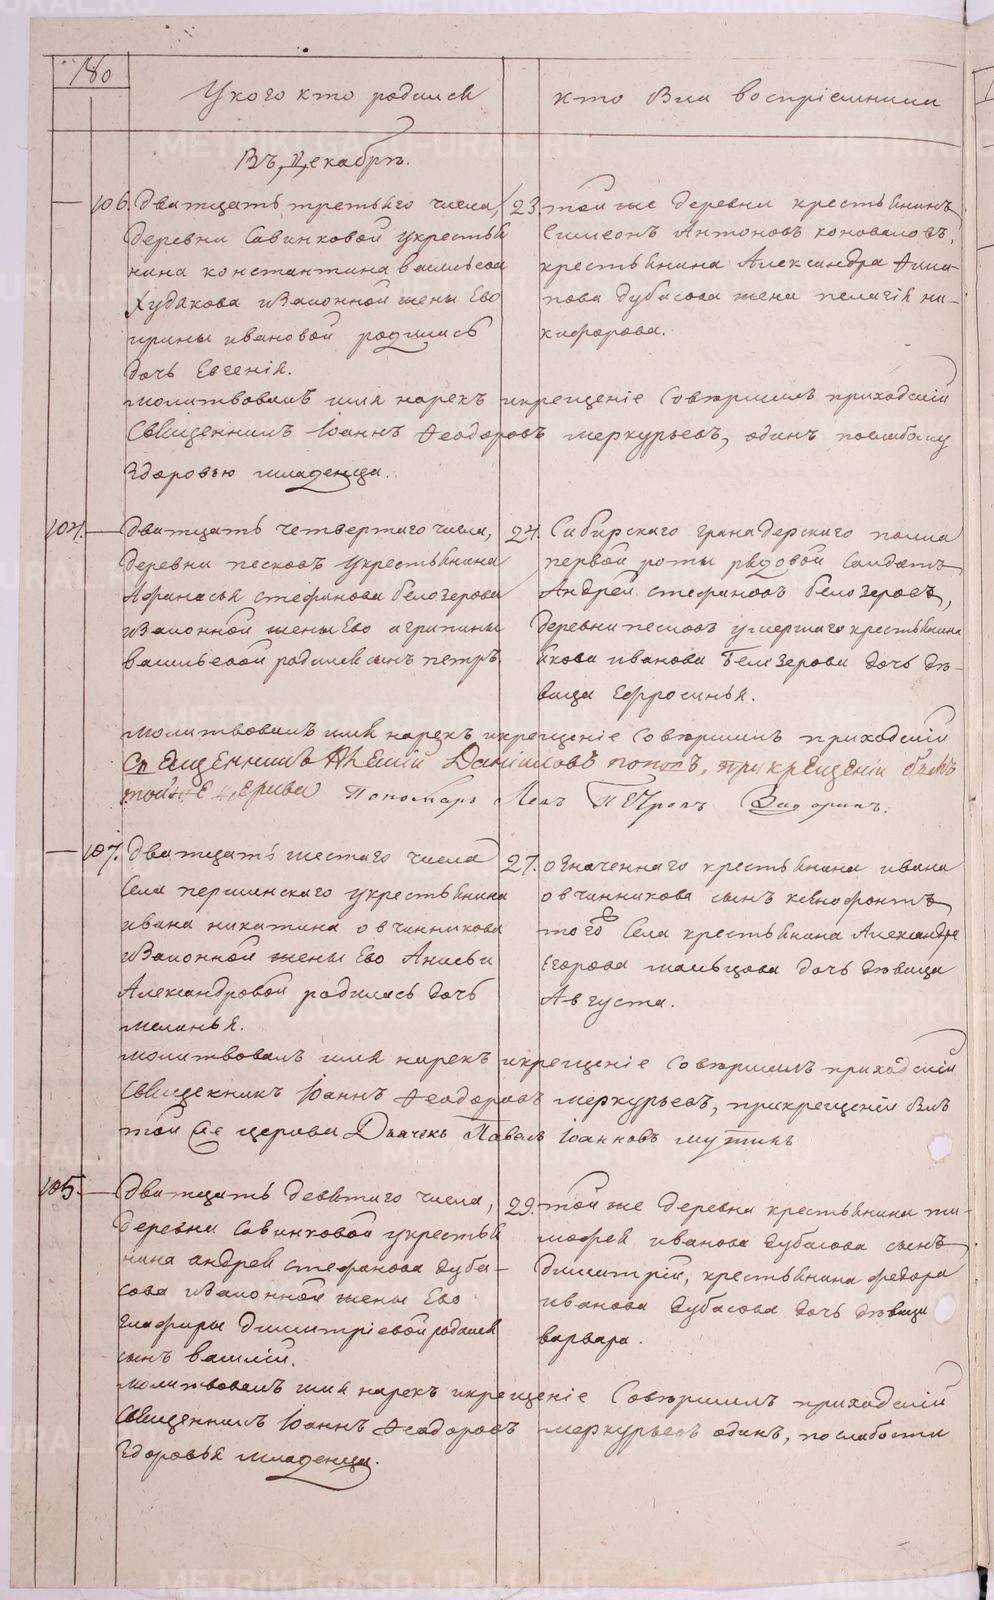 №
У кого кто родился
кто были восприемники
Въ Декабрѣ.
106. Дватцать третьяго числа, 23.
деревни Савинковой укрестья
нина константина васильева
Худакова изаконной жены Ево
ирины ивановой родилась
дочь Евгенія.
той же деревни крестьянинъ
Симеонъ Антоновъ коноваловъ,
крестьянина Александра Фили-
пова Дубасова жена пелагія ни-
кифорова.
молитвовалъ имя нарекъ икрещеніе Совершилъ приходскій
Священникъ Іоаннъ Феодоровъ меркурьевъ, одинъ послабому
здоровью младенца.
104. Дватцать четвертаго числа, 24.
деревни песковъ укрестьянина
Афанасья стефанова белозерова
изаконной жены Ево агрипины
васильевой родился сынъ петръ.
Сибирскаго гранадерскаго полка
первой роты рядовой Солдатъ
Андрей стефановъ белозеровъ,
деревни песковъ умершаго крестьянина
якова иванова Белозерова дочь дѣ-
вица Ефросинья.
молитвовалъ имя нарекъ икрещеніе Совершилъ приходскій
Священникъ Алексій Даниловъ поповъ, при крещеніи былъ
тойже церкви Пономарь Левъ Петровъ
107. Дватцать шестаго числа 27.
Села першинскаго укрестьянина
ивана никитина овчинникова
изаконной жены Ево Анисьи
Александровой родилась дочь
меланья.
означеннаго крестьянина ивана
овчинникова сынъ ксенофонтъ
того Села крестьянина Александра
Егорова мальцова дочь дѣвица
Августа.
молитвовалъ имя нарекъ икрещеніе Совершилъ приходскій
Священникъ Іоаннъ Феодоровъ меркурьевъ, прикрещеніи былъ
той же церкви Дьячекъ Павелъ Іоанновъ мутинъ
105. Дватцать девятаго числа, 29.
деревни Савинковой укрестья
нина андрея стефанова дуба-
сова изаконной жены Ево
глафиры димитріевой родился
сынъ василій.
той же деревни крестьянина ти-
мофея иванова дубасова сынъ
димитрій, крестьянина федора
иванова дубасова дочь дѣвица
варвара.
молитвовалъ имя нарекъ икрещеніе Совершилъ приходскій
Священникъ Іоаннъ Феодоровъ меркурьевъ одинъ, послабости
здоровья младенца.
METRIKI.GASO-URAL.RU